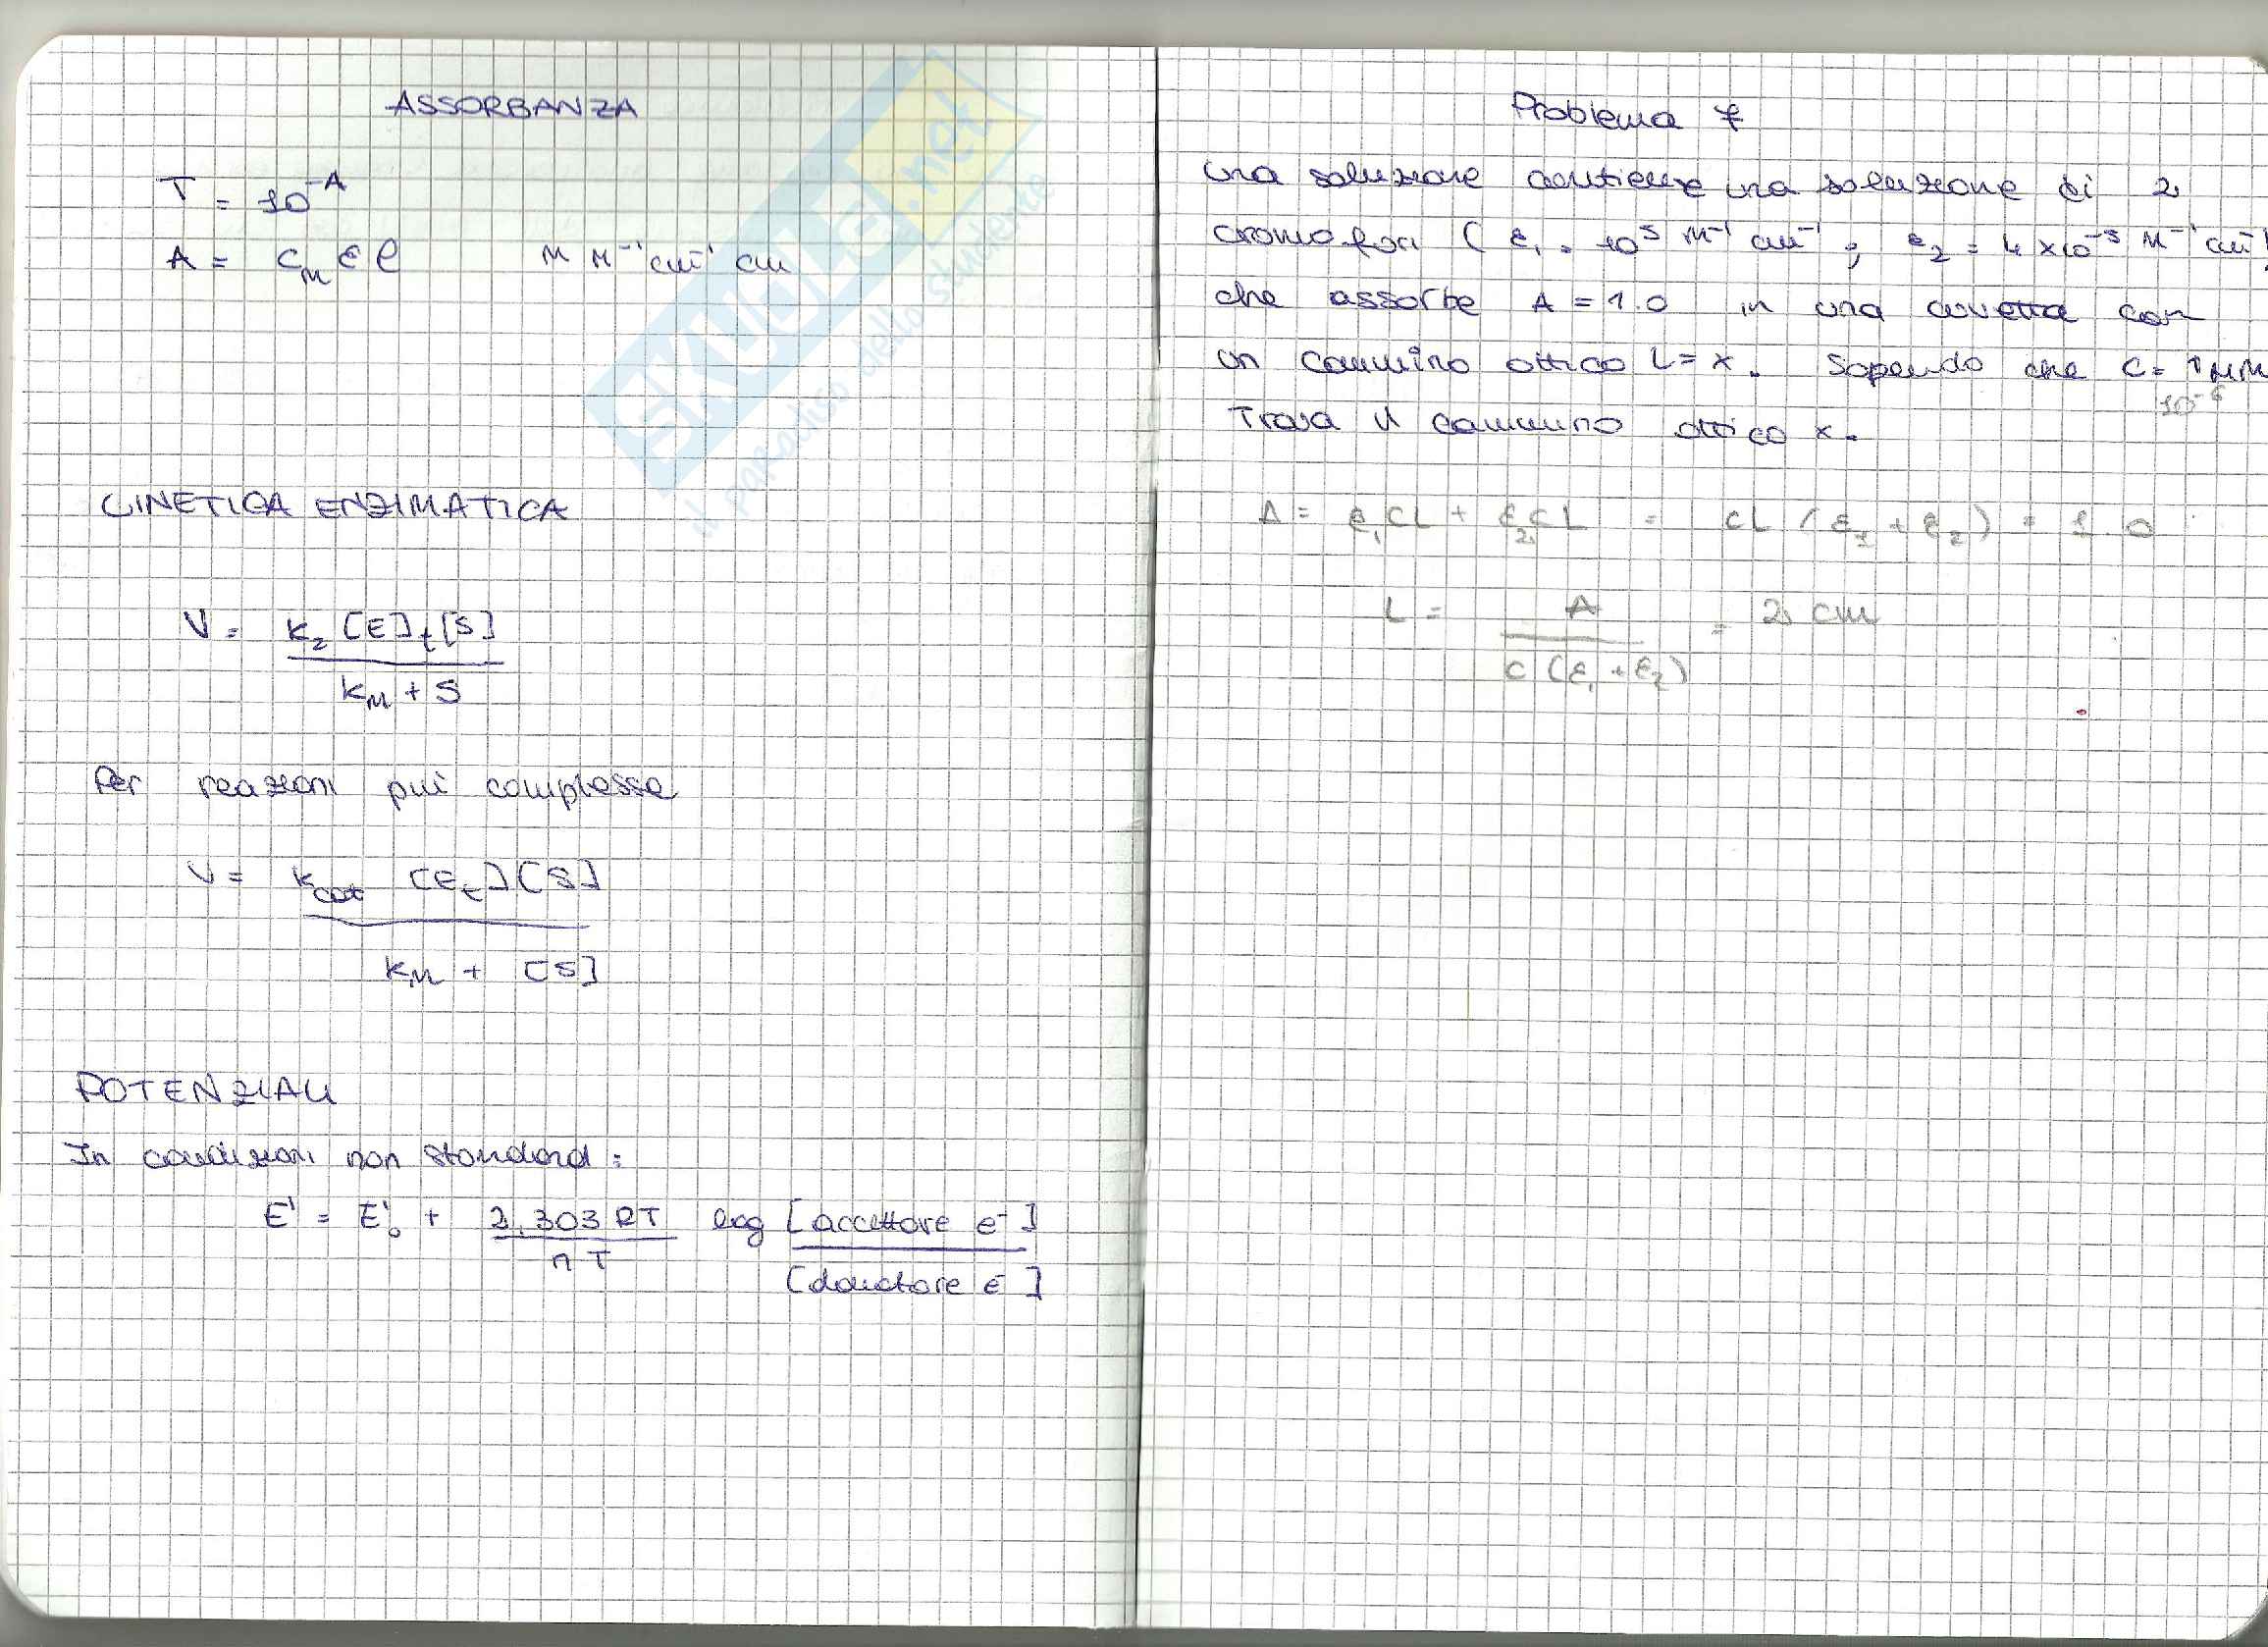 ASSORBANZA
T = 10^-A
A = C_M ε l M M^-1 cm^-1 cm
CINETICA ENZIMATICA
V = K_2 [E]_t [S]
K_M + S
Per reazioni più complesse
V = K_cat [E_t] [S]
K_M + [S]
POTENZIALI
In condizioni non standard:
E' = E'_0 + 2,303 RT log [accettore e^-]
n T [donatore e^-]
Problema 7
una soluzione contiene una soluzione di 2
cromofori (ε_1 = 10^5 M^-1 cm^-1 ; ε_2 = 4 x 10^-5 M^-1 cm^-1)
che assorbe A = 1.0 in una cuvetta con
un cammino ottico L = x. Sapendo che C = 1 μM
10^-6
Trova il cammino ottico x.
A = ε_1 C L + ε_2 C L = C L (ε_1 + ε_2) = 1.0
L = A = 2 cm
C (ε_1 + ε_2)
SKUOLA.net
il paradiso dello studente